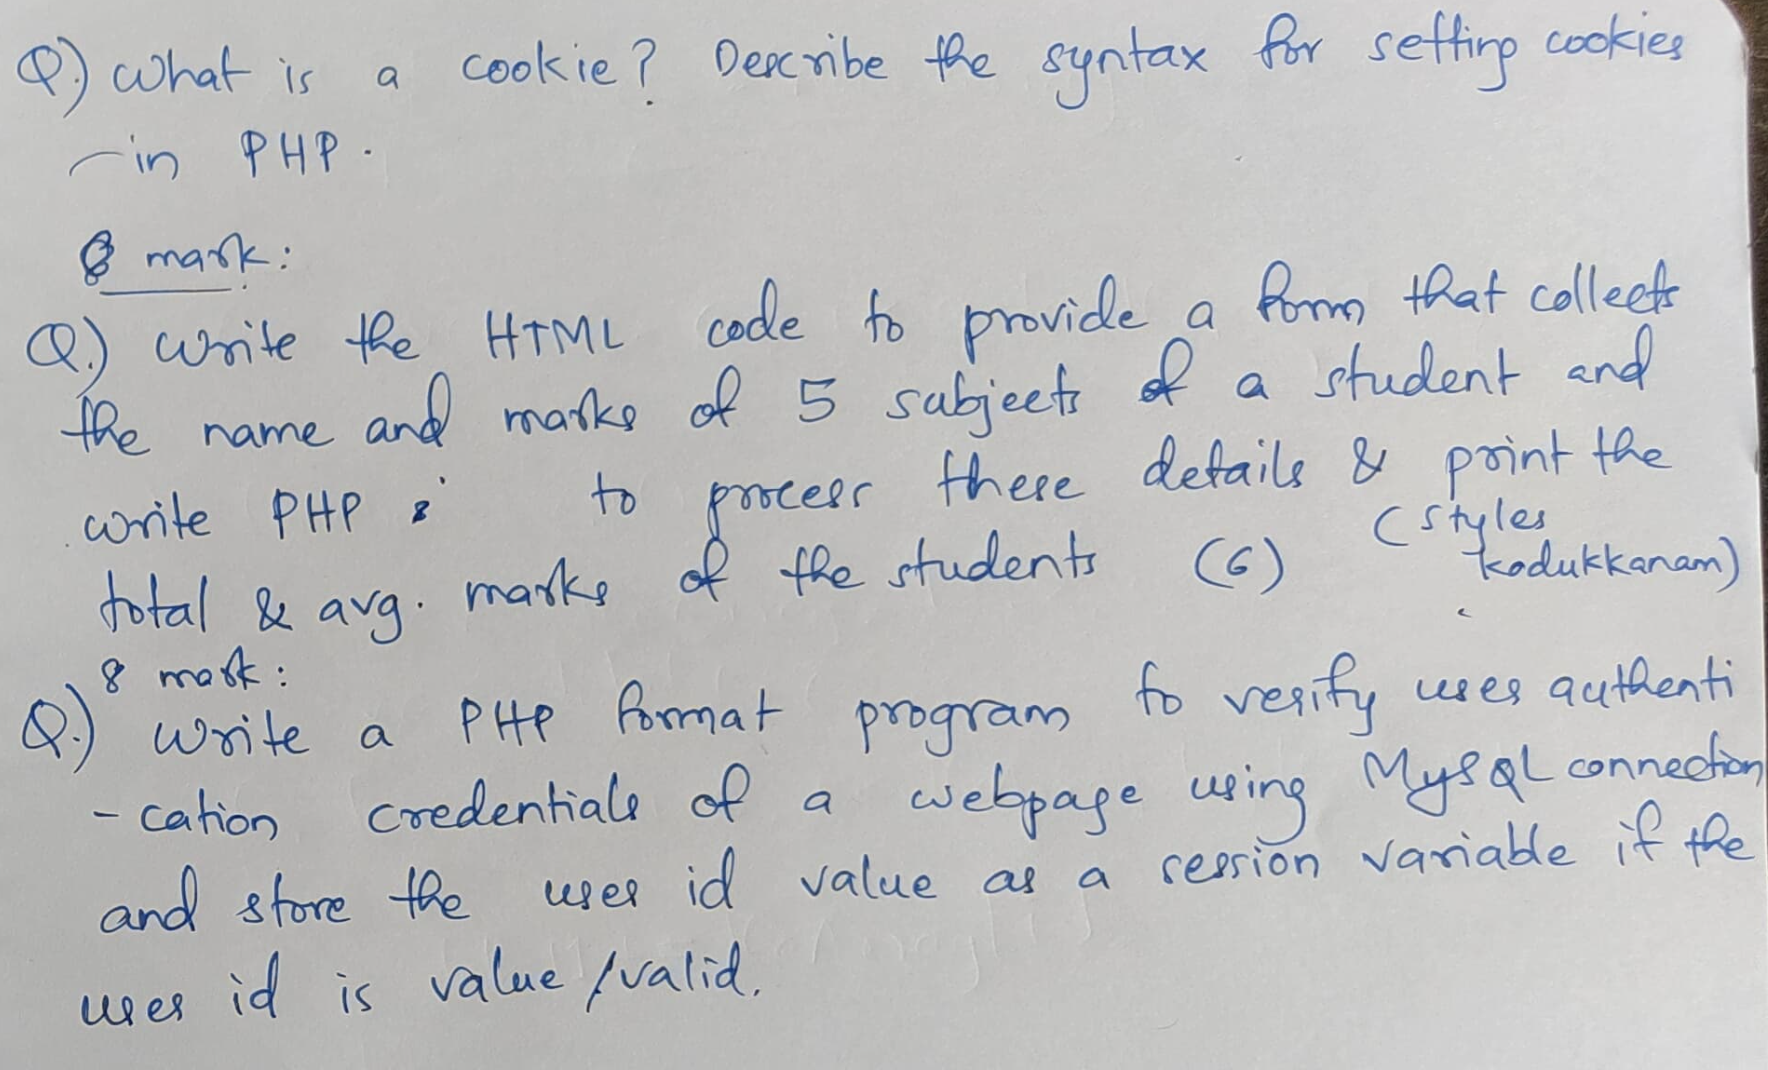 Q.) What is a cookie? Describe the syntax for setting cookies
in PHP.
8 mark:
Q.) Write the HTML code to provide a form that collects
the name and marks of 5 subjects of a student and
write PHP to process these details & print the
total & avg. marks of the students (6) (styles
kodukkanam)
8 mark:
Q.) Write a PHP format program to verify user authenti
-cation credentials of a webpage using MySQL connection
and store the user id value as a session variable if the
user id is value /valid.